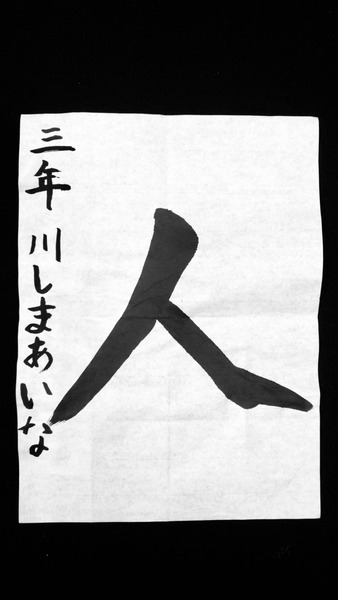 人
三年 川しまあいな